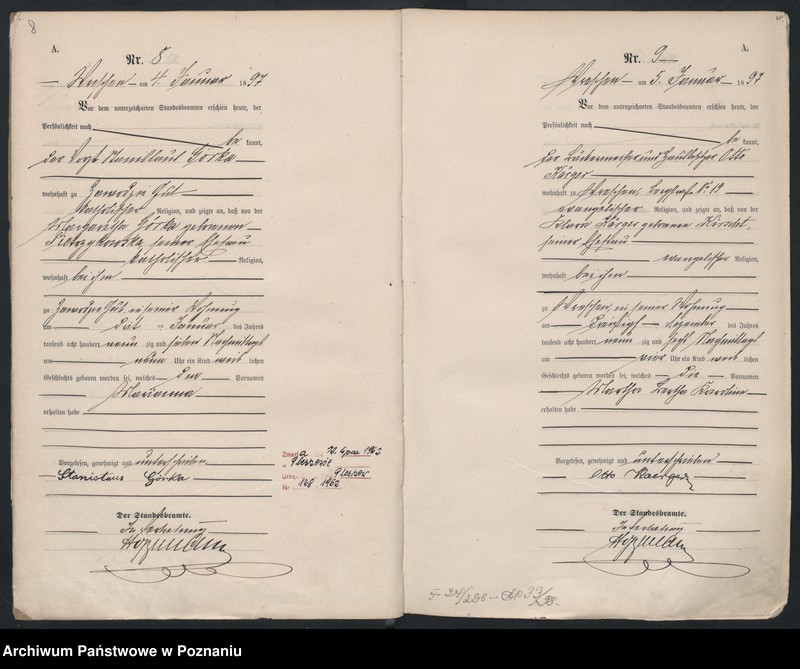 8
A.
Nr. 8
Wreschen am 4. Januar 1897
Vor dem unterzeichneten Standesbeamten erschien heute, der
Persönlichkeit nach
be kannt,
der Vogt Stanislaus Gorka
wohnhaft zu Zawodzie Gut
katholischer Religion, und zeigte an, daß von der
Margaretha Gorka geborenen
seiner Ehefrau
katholischer Religion,
wohnhaft bei ihm
zu Zawodzie Gut in seiner Wohnung
am Januar des Jahres
tausend acht hundert neun zig und sieben Nachmittags
um Uhr ein Kind weib lichen
Geschlechts geboren worden sei, welches den Vornamen
Marianna
erhalten habe
Vorgelesen, genehmigt und unterschrieben
Stanislaus Górka
Der Standesbeamte.
In Vertretung
Zmarł a 1962
w
Urzą
Nr 128 1962
A.
Nr. 9
Wreschen am 5. Januar 1897
Vor dem unterzeichneten Standesbeamten erschien heute, der
Persönlichkeit nach
be kannt,
der und Hausbesitzer Otto
Kärger
wohnhaft zu Wreschen, No 19
evangelischer Religion, und zeigte an, daß von der
Klara Kärger geborenen
seiner Ehefrau
evangelischer Religion,
wohnhaft bei ihm
zu Wreschen, in seiner Wohnung
am Dezember des Jahres
tausend acht hundert neun zig und sechs Nachmittags
um vier Uhr ein Kind weib lichen
Geschlechts geboren worden sei, welches die Vornamen
Martha Bertha Karoline
erhalten habe
Vorgelesen, genehmigt und unterschrieben
Otto Kaerger
Der Standesbeamte.
In Vertretung
Archiwum Państwowe w Poznaniu